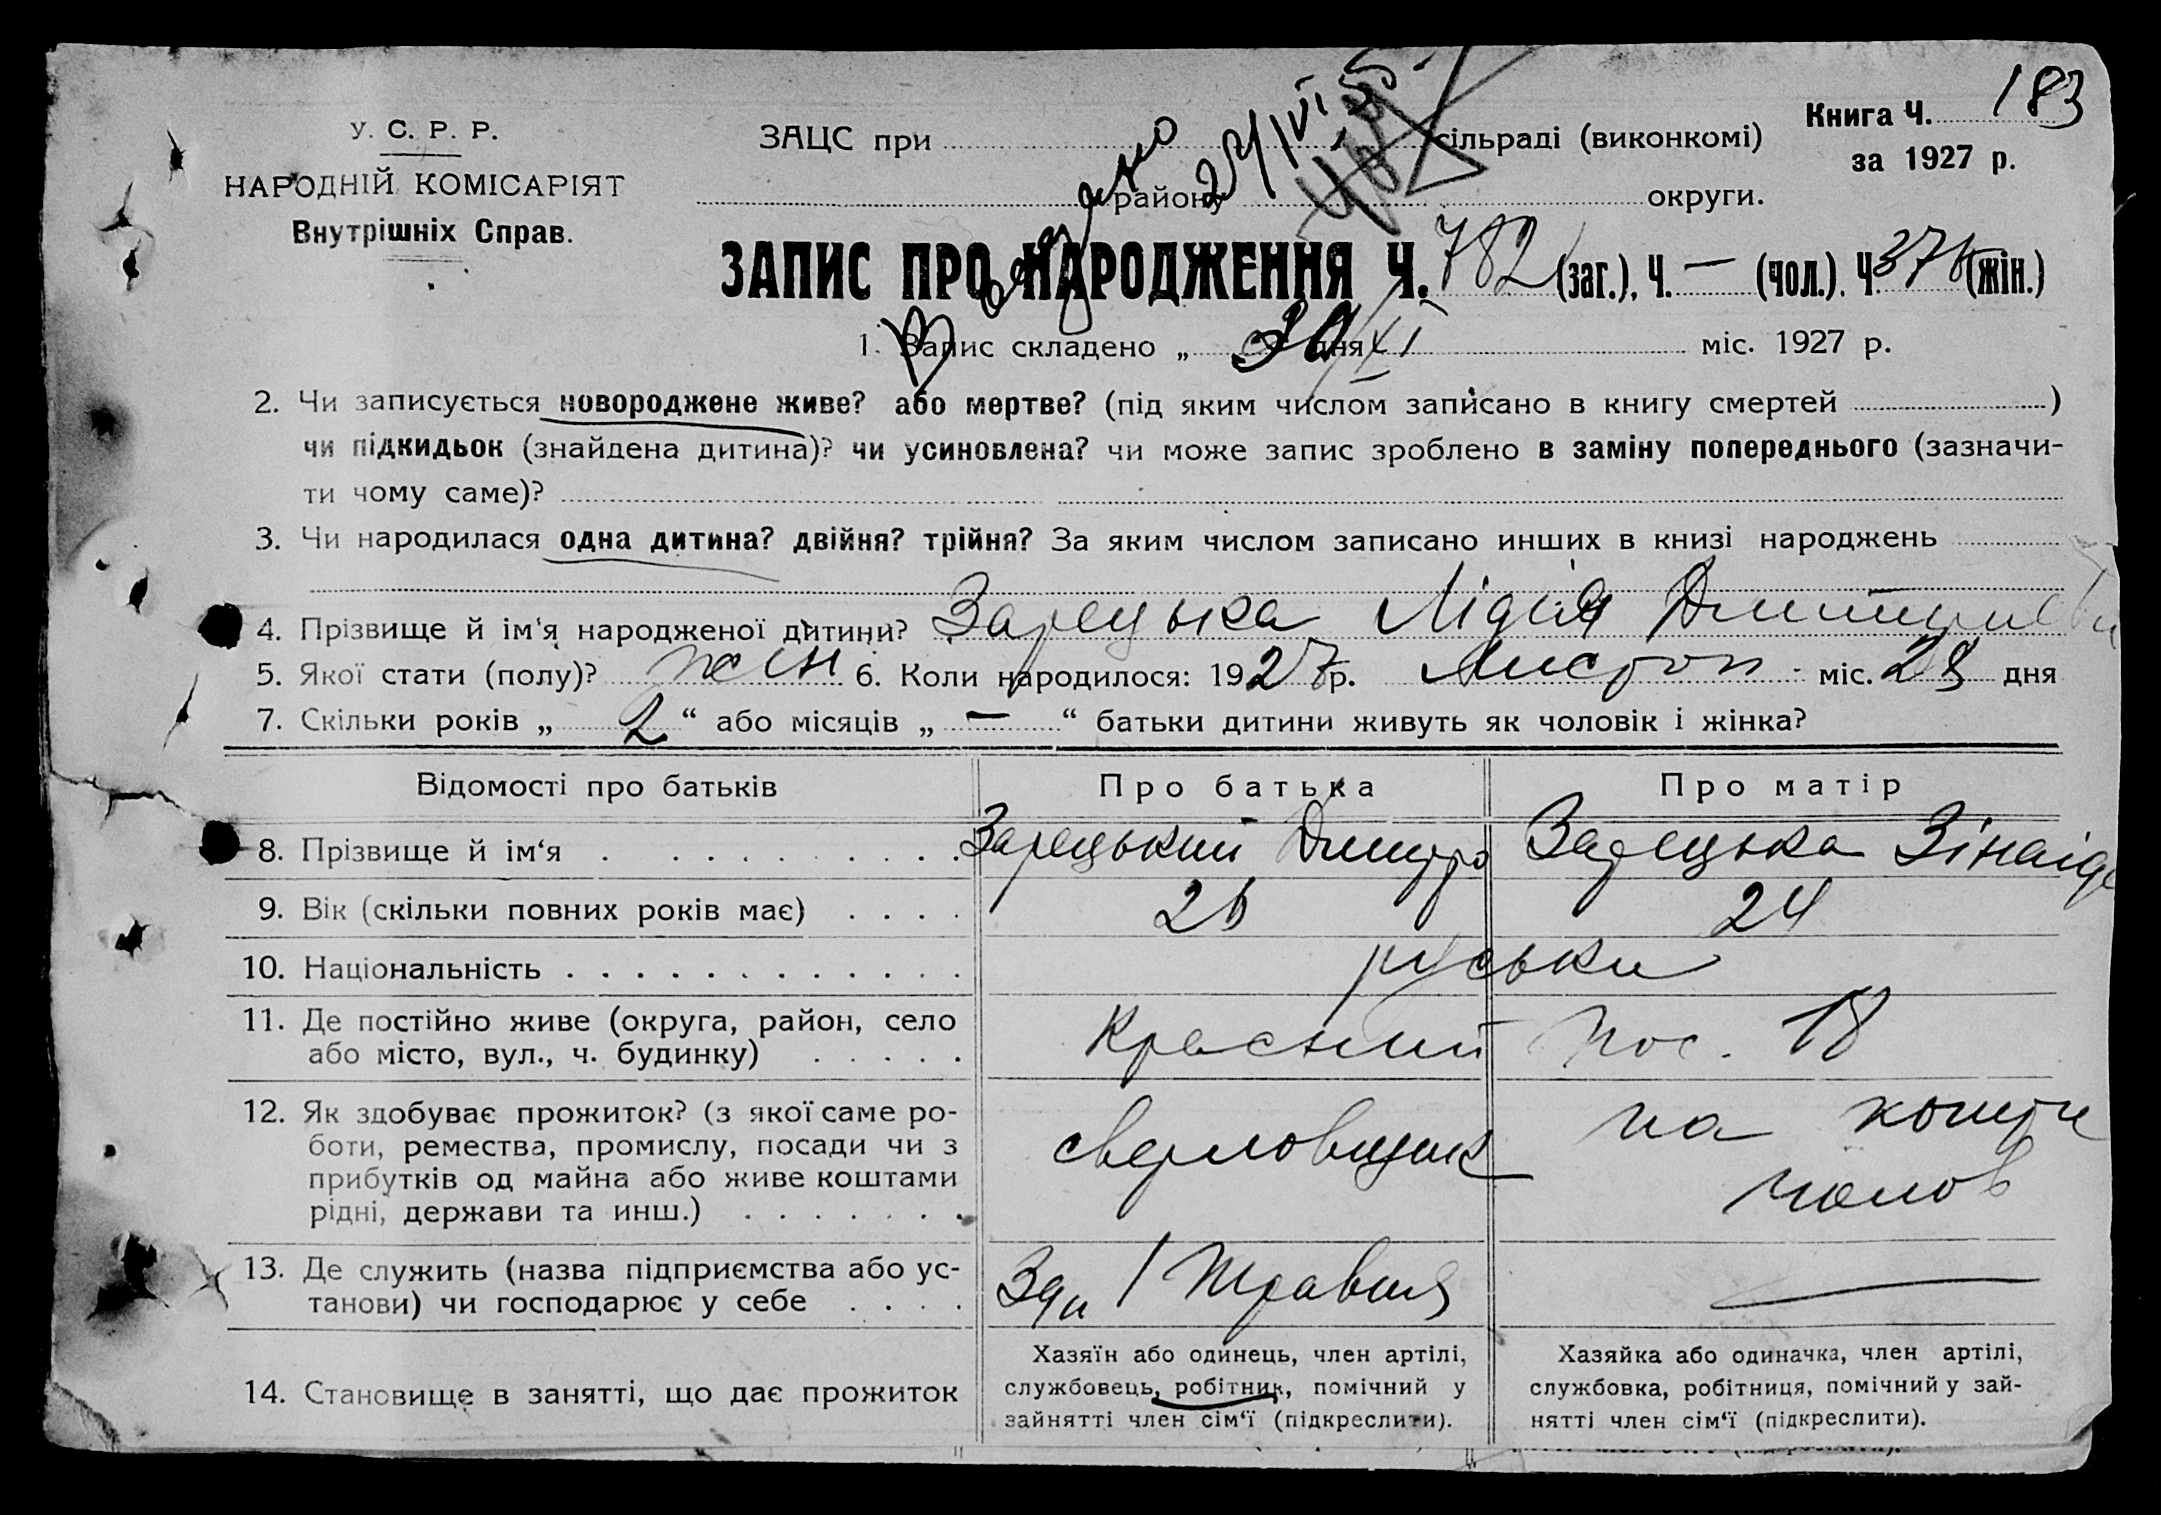 У. С. Р. Р.
НАРОДНІЙ КОМІСАРІЯТ
Внутрішніх Справ.
ЗАЦС при сільраді (виконкомі)
району округи.
Книга Ч. 183
за 1927 р.
ЗАПИС ПРО НАРОДЖЕННЯ Ч. 782 (заг.), Ч. — (чол.). Ч. (жін.)
1. Запис складено „ 30 дня XI міс. 1927 р.
2. Чи записується новороджене живе? або мертве? (під яким числом записано в книгу смертей )
чи підкидьок (знайдена дитина)? чи усиновлена? чи може запис зроблено в заміну попереднього (зазначи-
ти чому саме)?
3. Чи народилася одна дитина? двійня? трійня? За яким числом записано инших в книзі народжень
4. Прізвище й ім'я народженої дитини? Зарецька Лідія
5. Якої стати (полу)? жін 6. Коли народилося: 1927р. Листоп міс. 28 дня
7. Скільки років „ 2 “ або місяців „ — “ батьки дитини живуть як чоловік і жінка?
Відомості про батьків Про батька Про матір
8. Прізвище й ім‘я Зарецький Дмитро Зарецька Зінаіда
9. Вік (скільки повних років має) 24
10. Національність руськи
11. Де постійно живе (округа, район, село
або місто, вул., ч. будинку) Красний пос. 18
12. Як здобуває прожиток? (з якої саме ро-
боти, ремества, промислу, посади чи з
прибутків од майна або живе коштами
рідні, держави та инш.)
сверловщик
на кошти
чолов
13. Де служить (назва підприємства або ус-
танови) чи господарює у себе
1 Травня —
14. Становище в занятті, що дає прожиток
Хазяїн або одинець, член артілі,
службовець, робітник, помічний у
зайнятті член сім‘ї (підкреслити).
Хазяйка або одиначка, член артілі,
службовка, робітниця, помічний у зай-
нятті член сім‘ї (підкреслити).